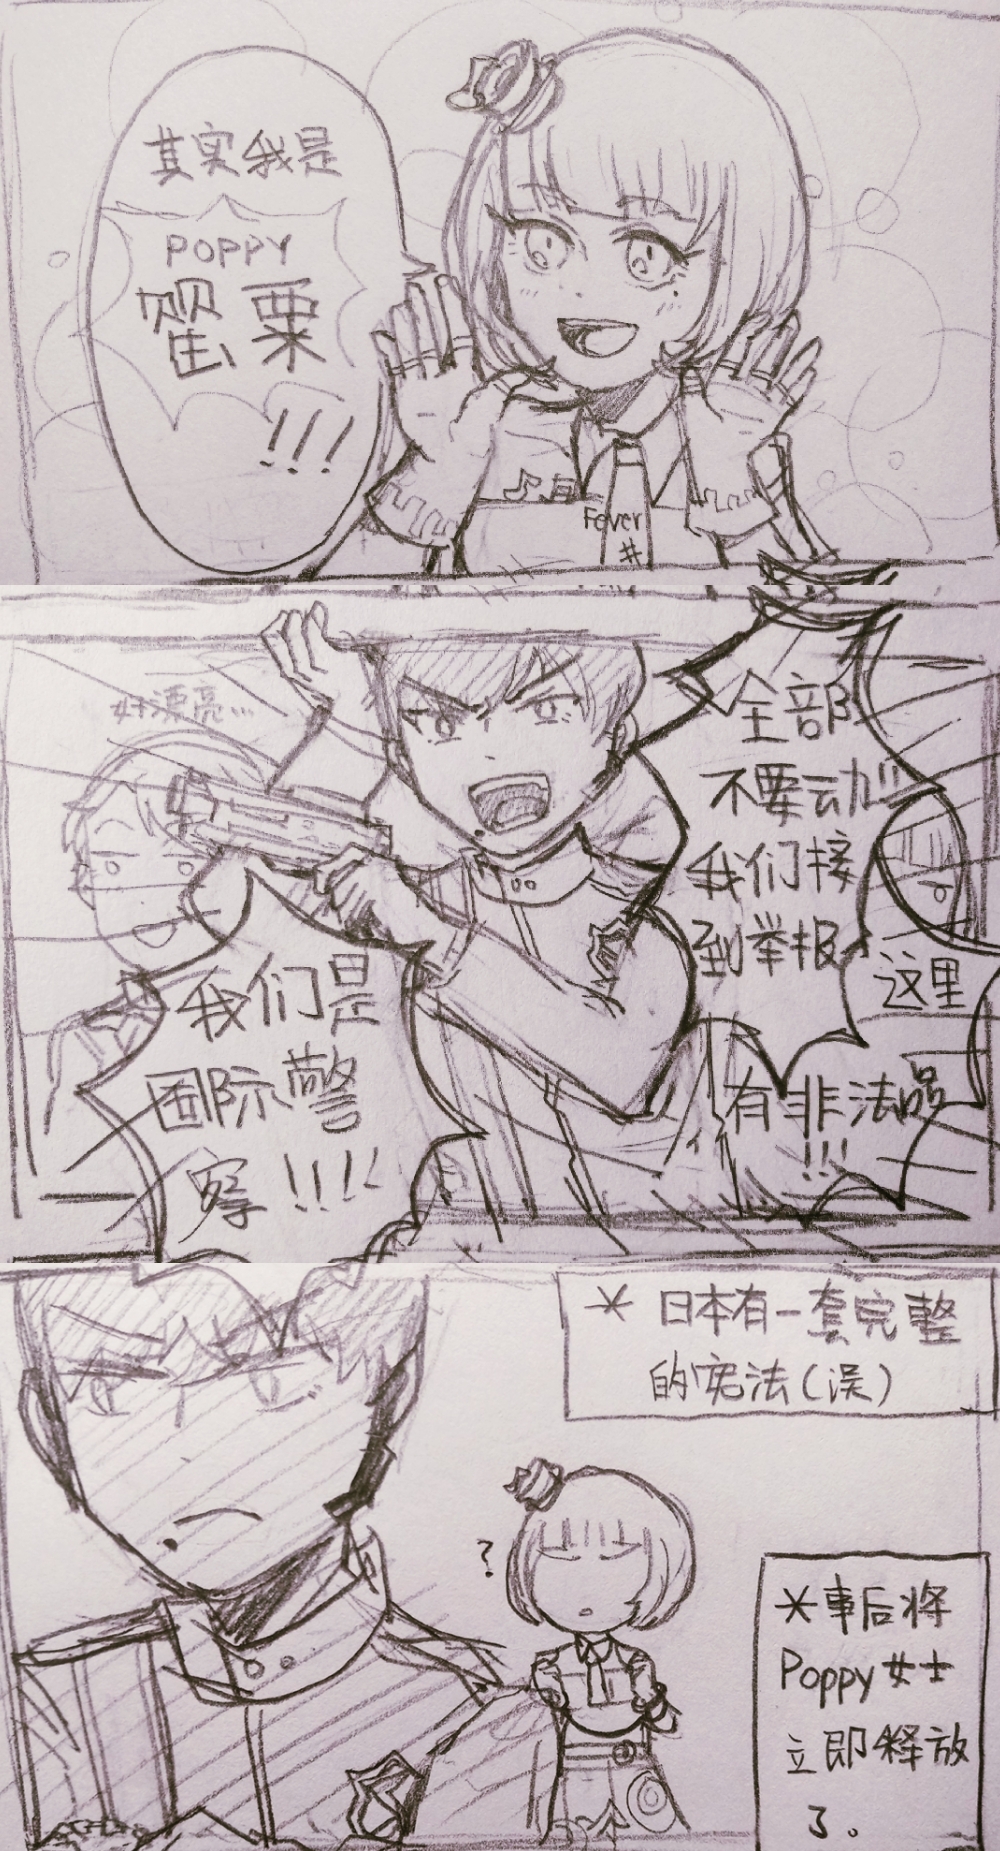 其实我是
POPPY
罂粟
!!!
Fever
#
好漂亮...
全部
不要动!!!
我们接
到举报
这里
有非法品
!!!
我们是
国际警
察!!!!
* 日本有一套完整
的宪法(误)
?
*事后将
Poppy女士
立即释放
了。